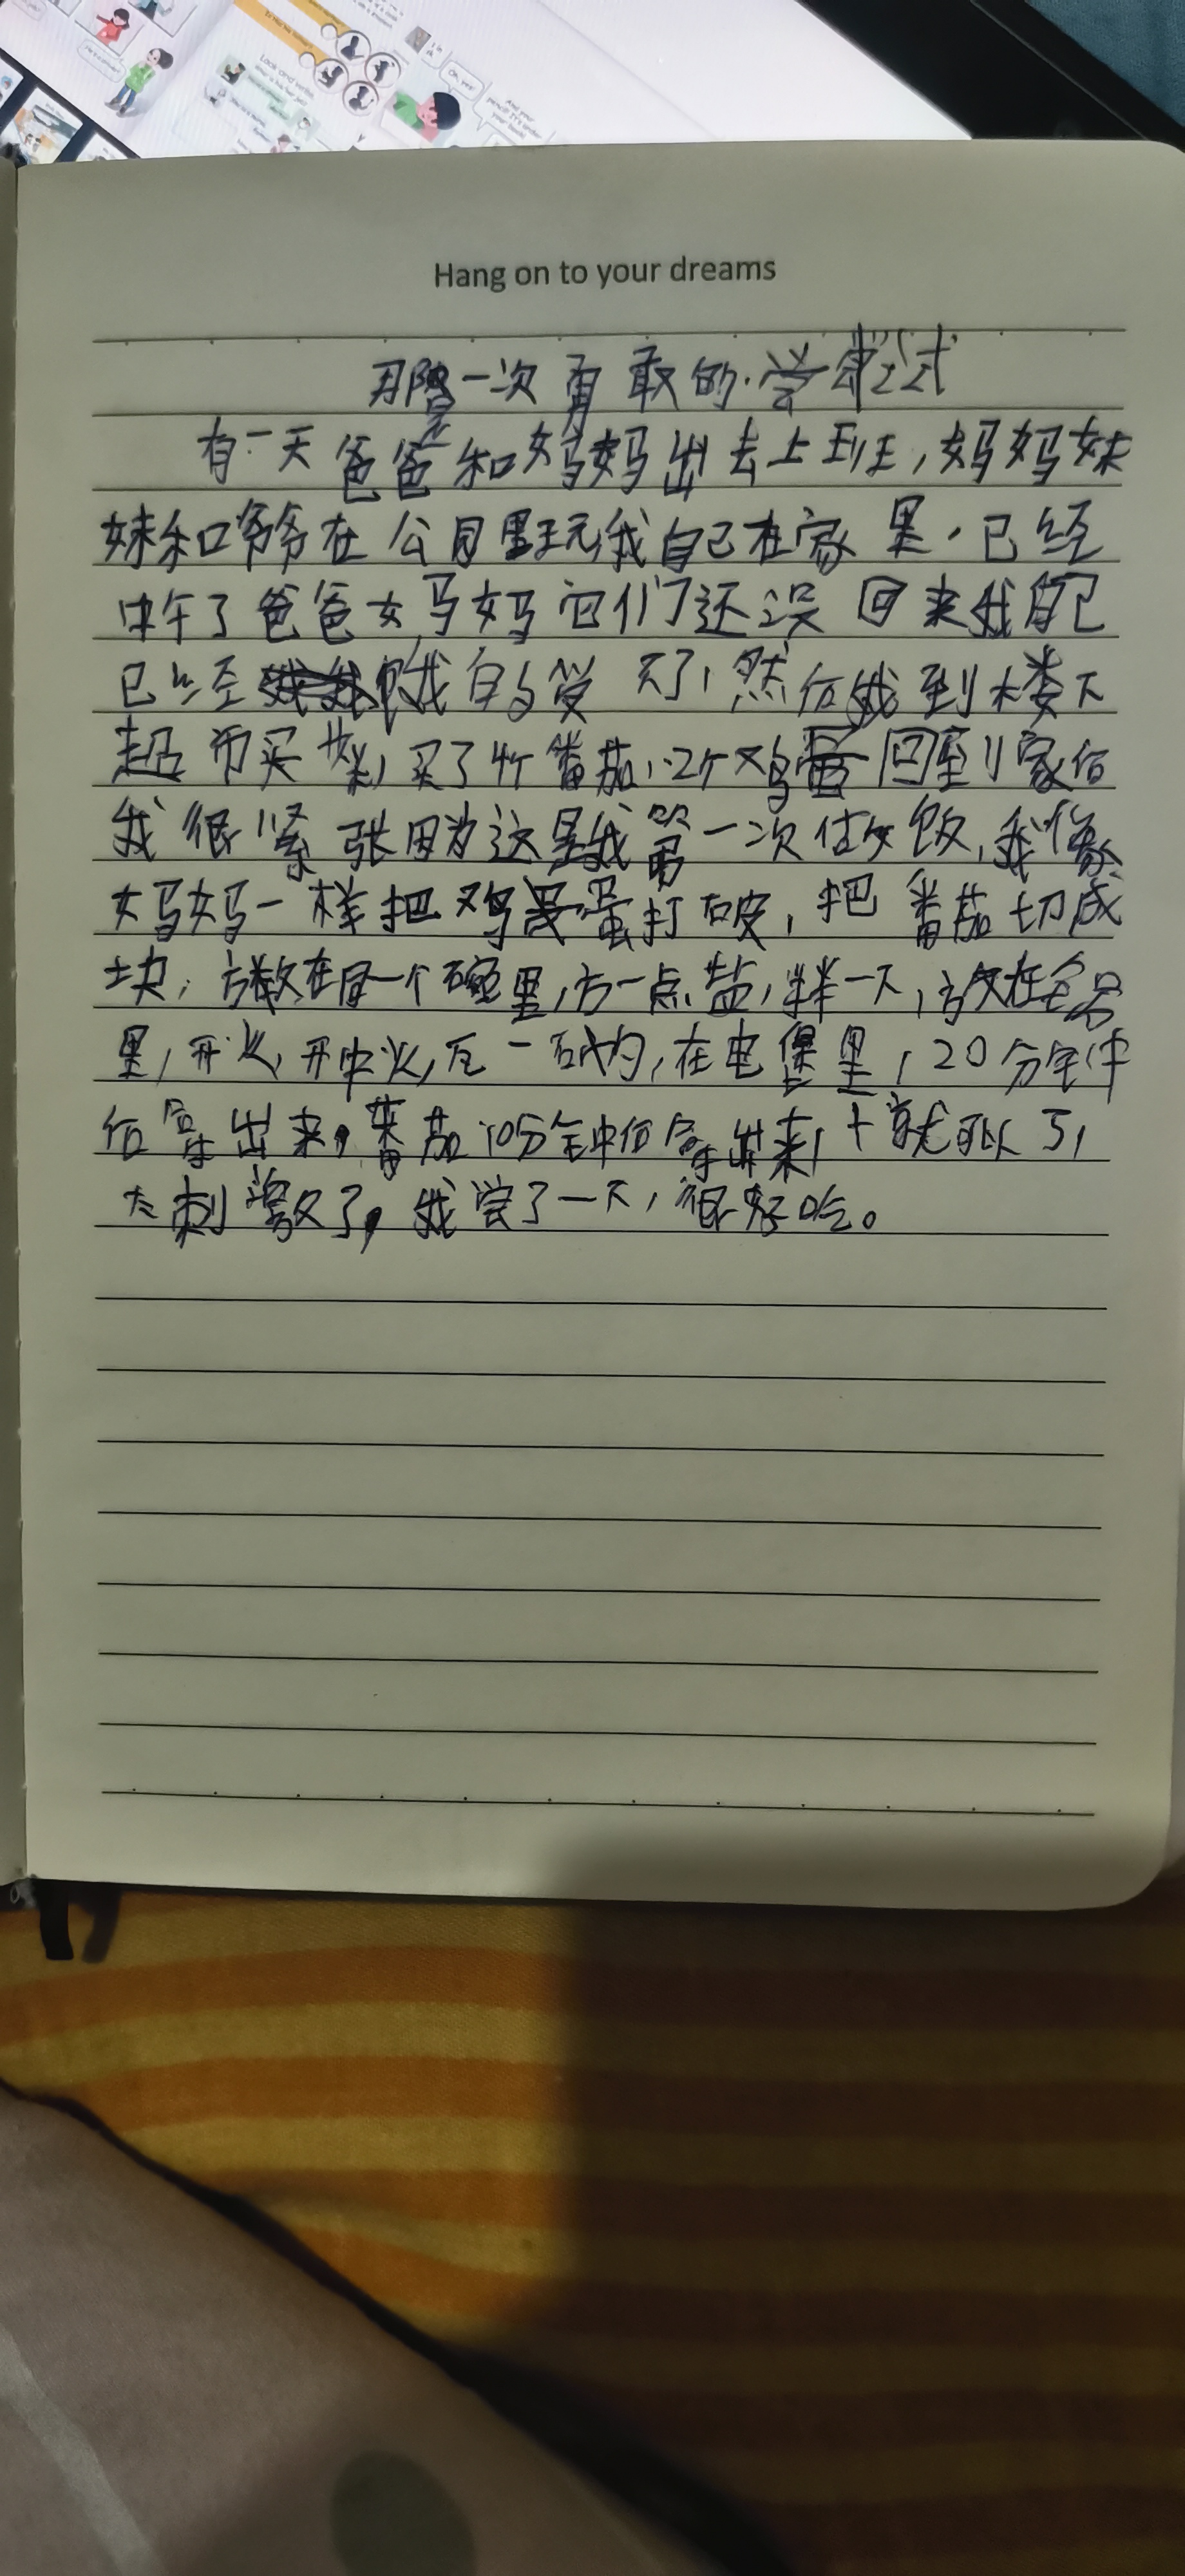 Look and write
Hang on to your dreams
那一次勇敢的尝试
有一天爸爸和妈妈出去上班,妈妈妹
妹和爷爷在公园里玩我自己在家里,已经
中午了爸爸妈妈它们还没回来我自己
已经饿的受不了,然后我到楼下
超市买菜,买了4个番茄,2个鸡蛋回到家后
我很紧张因为这是我第一次做饭,我像
妈妈一样把鸡蛋打破,把番茄切成
块,放在同一个碗里,方一点盐,拌一下,放在锅
里,开火,开中火,在电煲里,20分钟
后拿出来,番茄10分钟后拿出来,就可以了,
太刺激了,我尝了一下,很好吃。